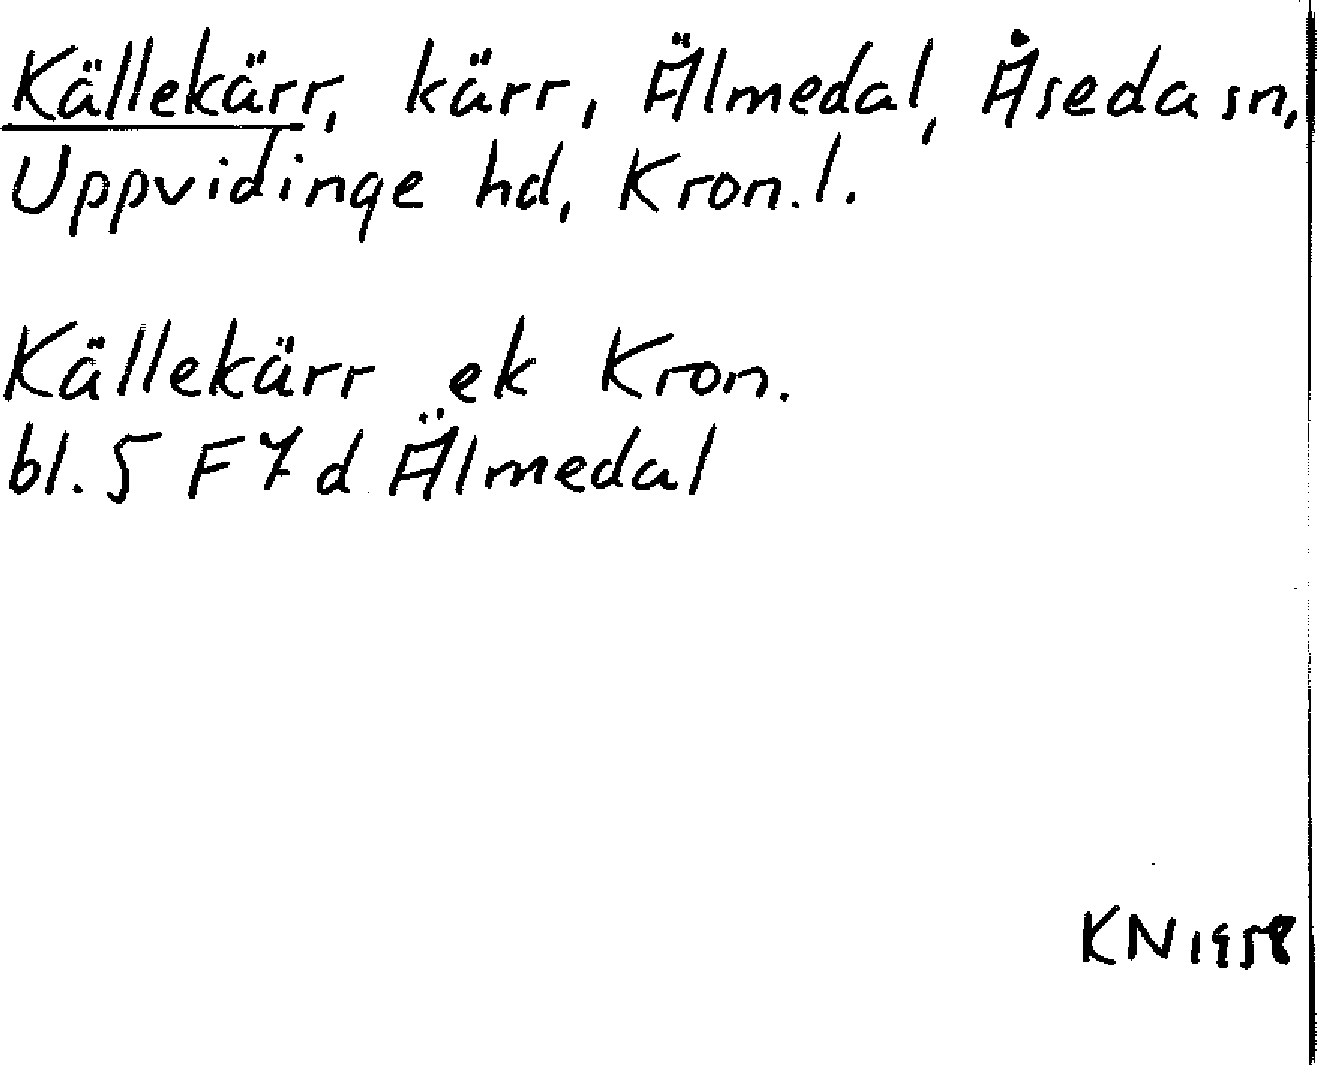 Källekärr, kärr, Älmedal, Åseda sn,
Uppvidinge hd, Kron.l.
Källekärr ek Kron.
bl. 5 F 7 d Älmedal
KN 1958